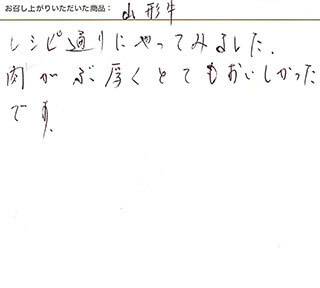 お召し上がりいただいた商品： 山形牛
レシピ通りにやってみました.
肉がぶ厚くとてもおいしかった
です.